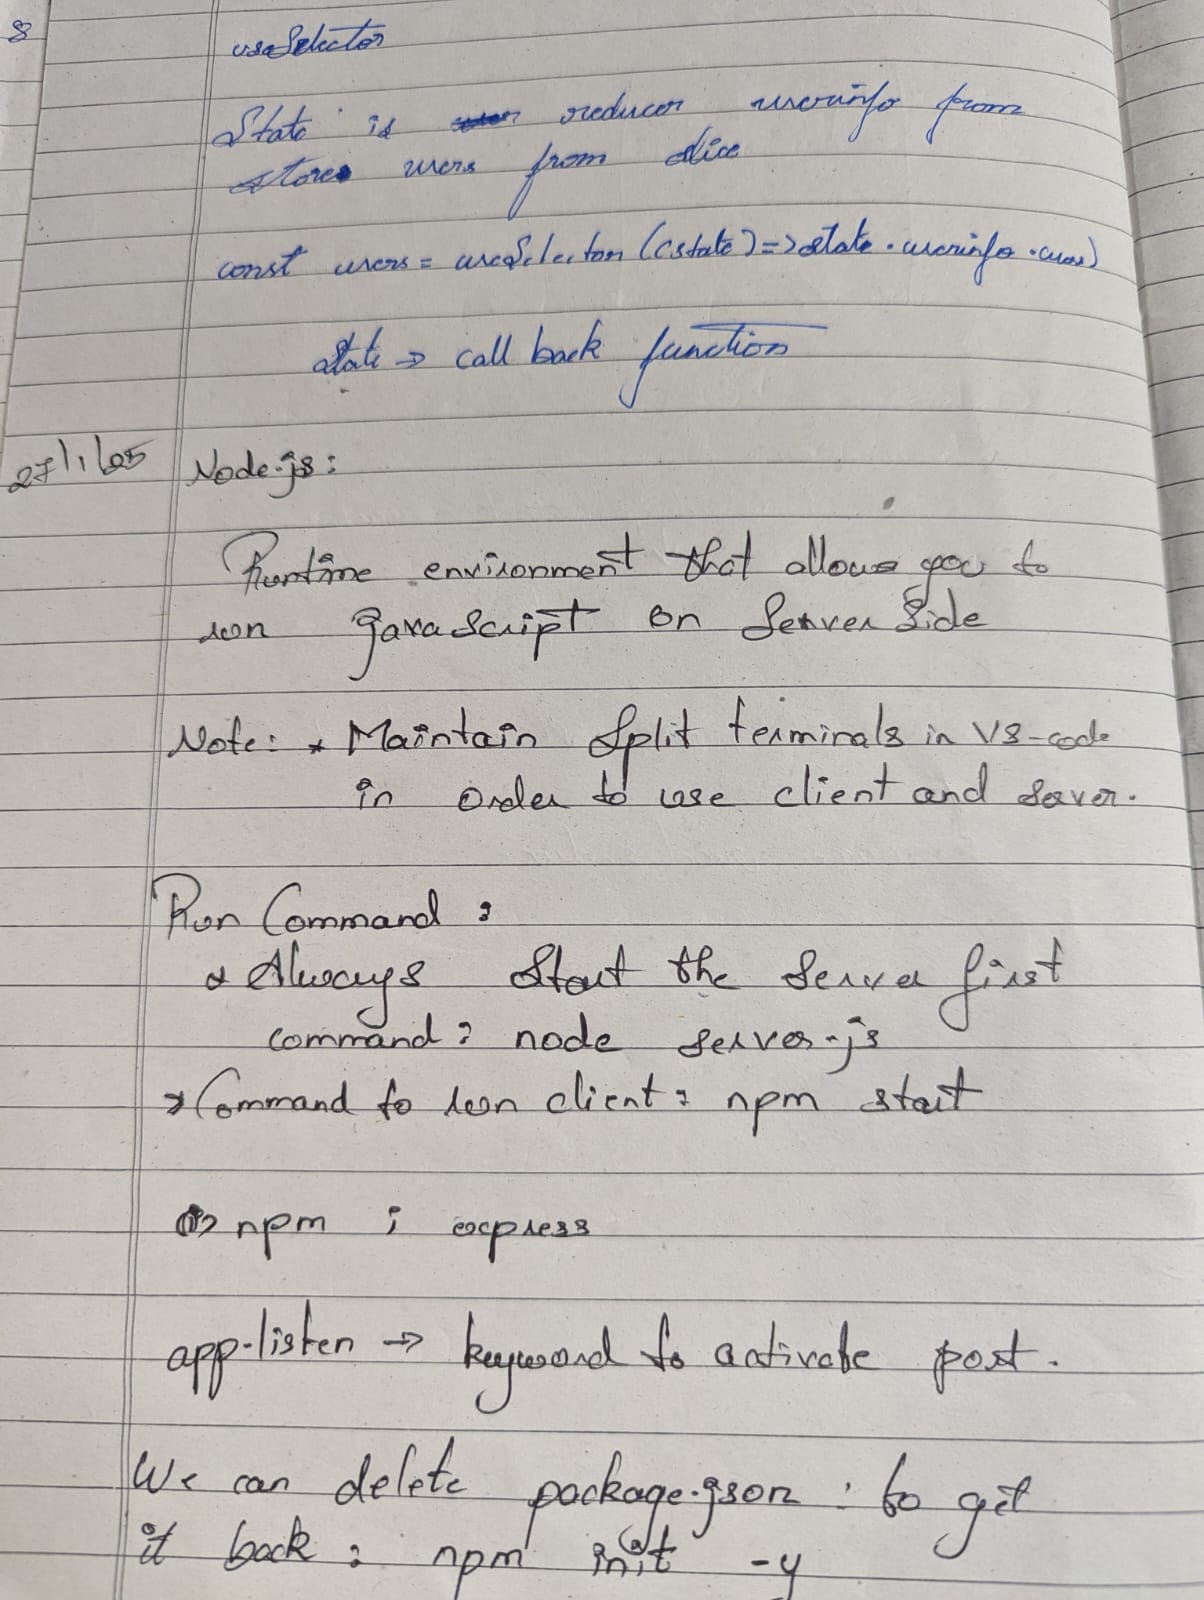 8
useSelector
State is reducer userinfo from
store users from slice
const users = useSelector ((state) => state.userinfo.user)
state → call back function
27/1/25 Node.js:
Runtime environment that allows you to
run JavaScript on Server Side
Note: * Maintain Split terminals in VS-code
in order to use client and server.
Run Command :
* Always Start the Server first
command : node server.js
* Command to run client : npm start
npm i express
app.listen → keyword to activate port.
We can delete package.json : to get
it back : npm init -y